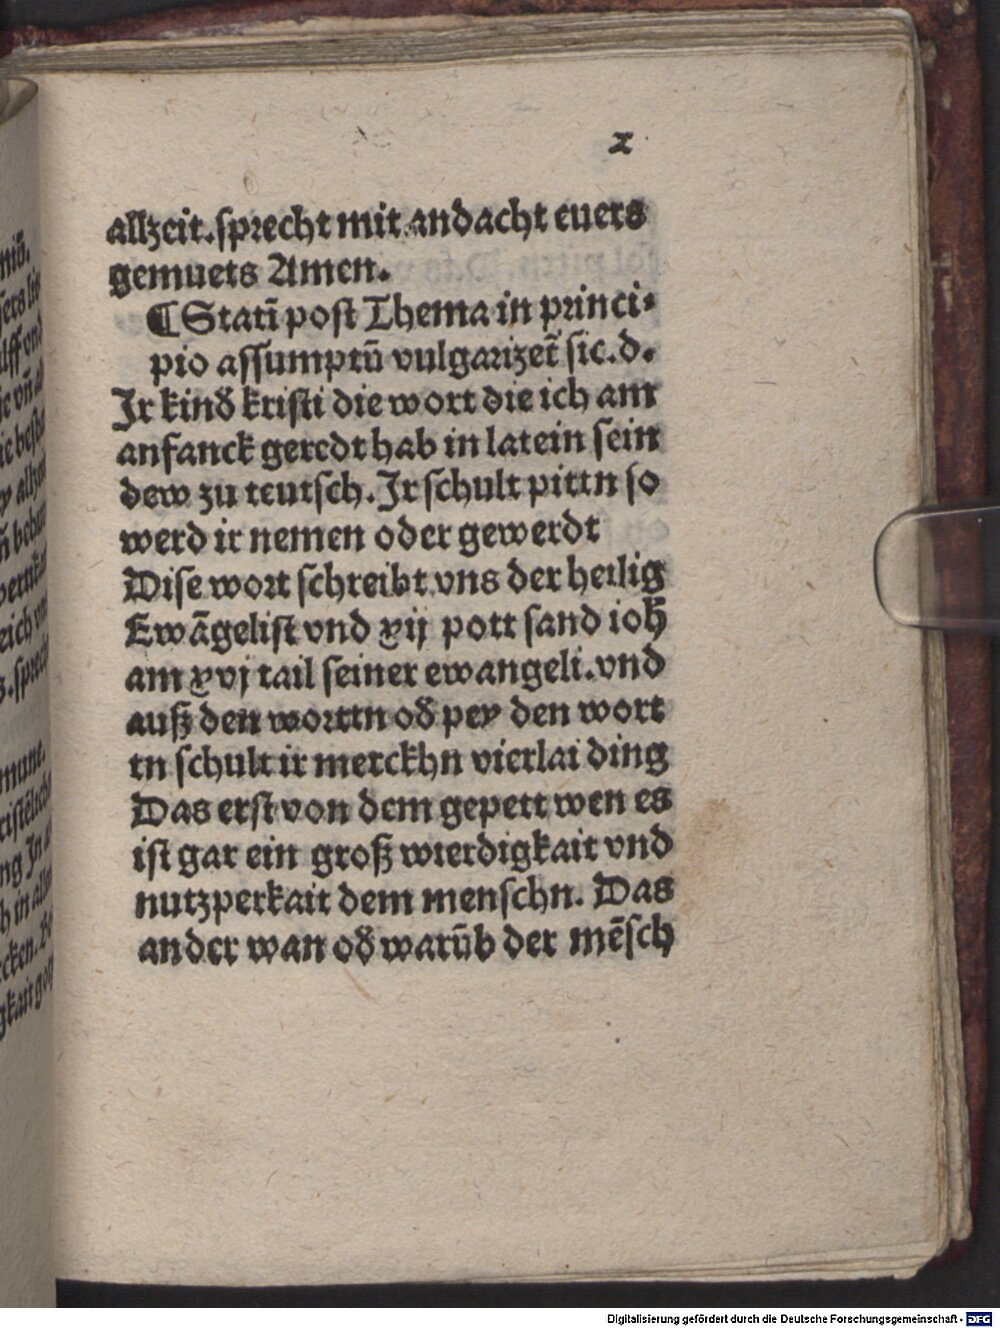 x
allzeit.sprecht mit andacht euers
gemuets Amen.
¶Stati᷑ post Thema in princi⸗
pio assumptū vulgarizet᷑ sic.d.
Jr kinð kristi die wort die ich am
anfanck geredt hab in latein sein
dew zu teutsch.Jr schult pittn so
werd ir nemen oder gewerdt
Dise wort schreibt vns der heilig
Ewāgelist vnd xij pott sand ioh̄
am xvj tail seiner ewangeli.vnd
auß den worttn oð pey den wort
tn schult ir merckhn vierlai ding
Das erst von dem gepett wen es
ist gar ein groß wierdigkait vnd
nutzperkait dem menschn. Das
ander wan oð warūb der mēsch
Digitalisierung gefördert durch die Deutsche Forschungsgemeinschaft - DFG